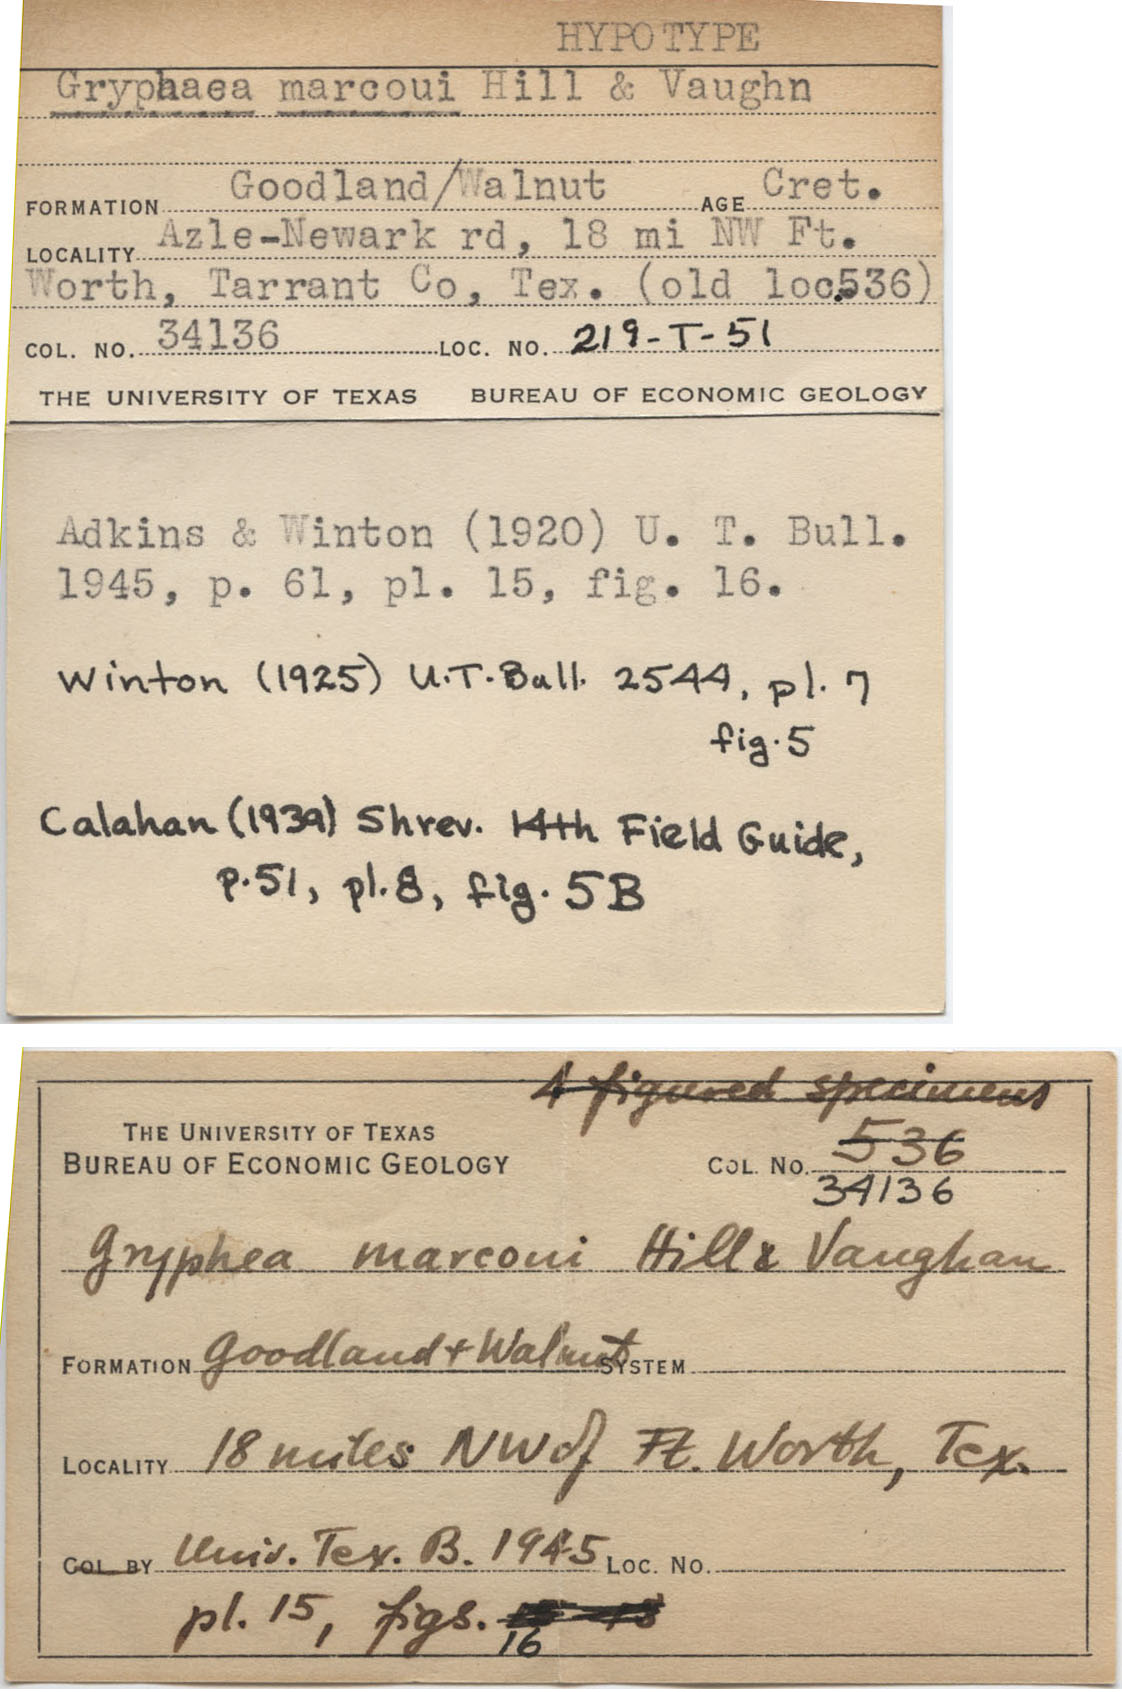 HYPOTYPE
Gryphaea marcoui Hill & Vaughn
FORMATION Goodland/Walnut AGE Cret.
LOCALITY Azle-Newark rd, 18 mi NW Ft.
Worth, Tarrant Co, Tex. (old loc.536)
COL. NO. 34136 LOC. NO. 219-T-51
THE UNIVERSITY OF TEXAS BUREAU OF ECONOMIC GEOLOGY
Adkins & Winton (1920) U. T. Bull.
1945, p. 61, pl. 15, fig. 16.
Winton (1925) U.T. Bull. 2544, pl. 7
fig. 5
Calahan (1939) Shrev. 14th Field Guide,
p. 51, pl. 8, fig. 5B
4 figured specimens
THE UNIVERSITY OF TEXAS
BUREAU OF ECONOMIC GEOLOGY
COL. NO. 536
34136
Gryphea marcoui Hill & Vaughan
FORMATION Goodland + Walnut SYSTEM
LOCALITY 18 miles NW of Ft. Worth, Tex.
COL BY Univ. Tex. B. 1945 LOC. NO.
pl. 15, figs.
16